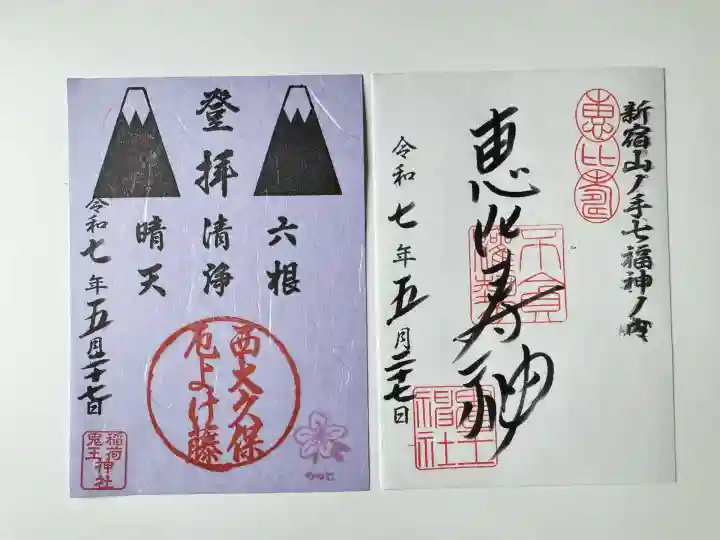 登拝
六根
清浄
晴天
令和七年五月二十七日
西大久保
厄よけ藤
稲荷
鬼王
神社
新宿山ノ手七福神ノ内
恵比寿
恵比寿神
令和七年五月二十七日
鬼王
神社